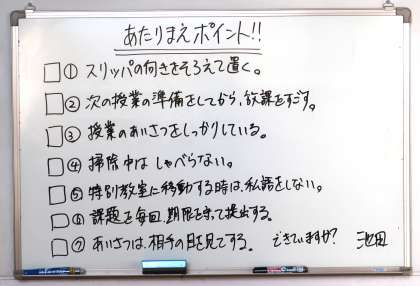 あたりまえポイント!!
□① スリッパの向きをそろえて置く。
□② 次の授業の準備をしてから、放課をすごす。
□③ 授業のあいさつをしっかりしている。
□④ 掃除中はしゃべらない。
□⑤ 特別教室に移動する時は、私語をしない。
□⑥ 課題を毎回、期限を守って提出する。
□⑦ あいさつは、相手の目を見てする。 できていますか? 池田